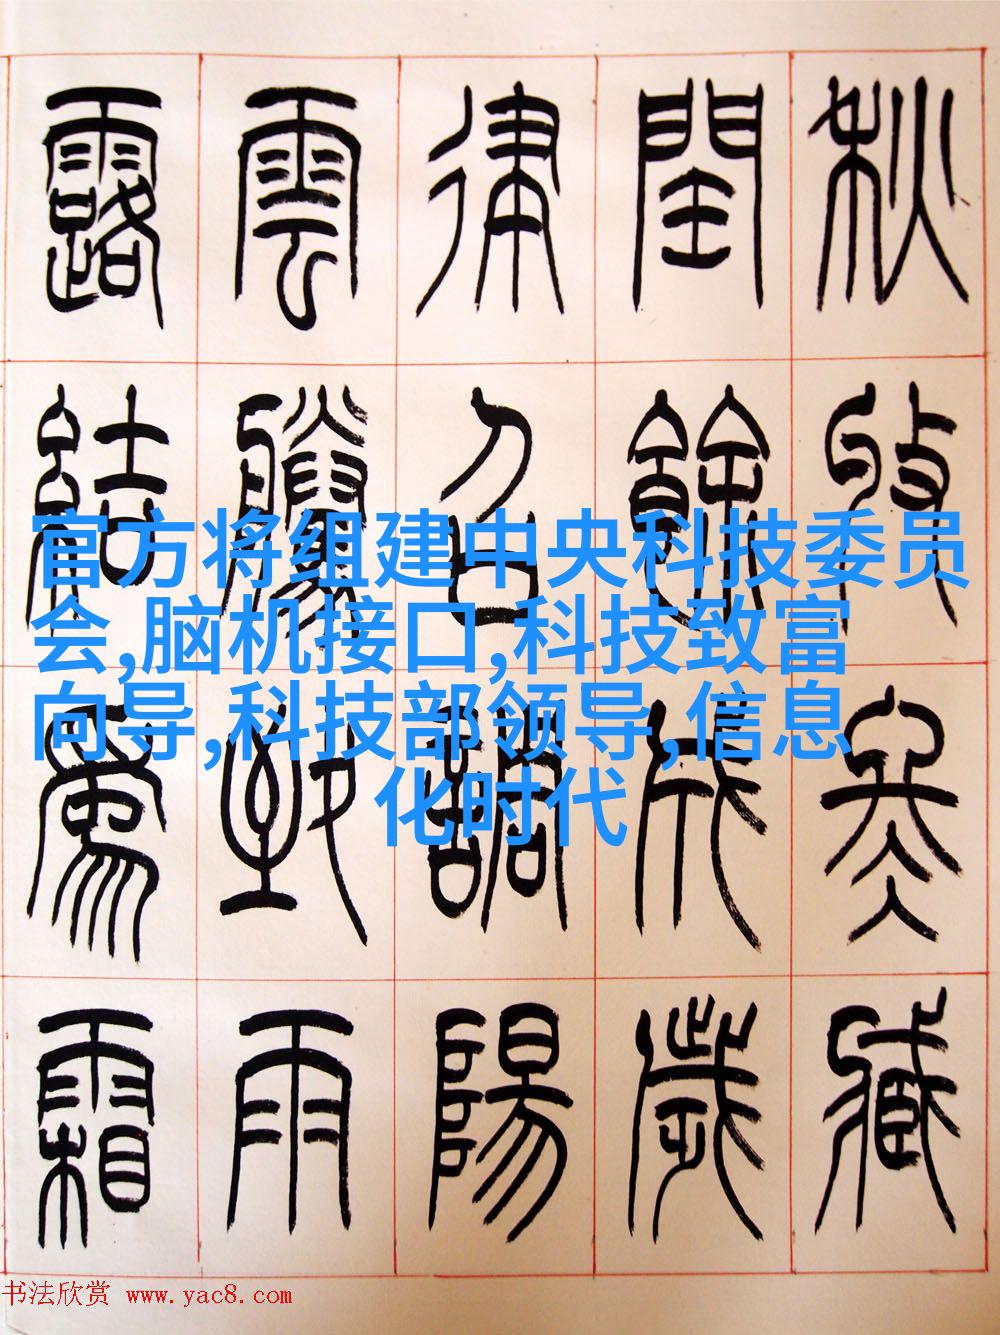 秋收冬臧
閏餘成歲
律召調陽
雲騰致雨
露結爲霜
官方将组建中央科技委员
会,脑机接口,科技致富
向导,科技部领导,信息
化时代
书法欣赏 www.yac8.com